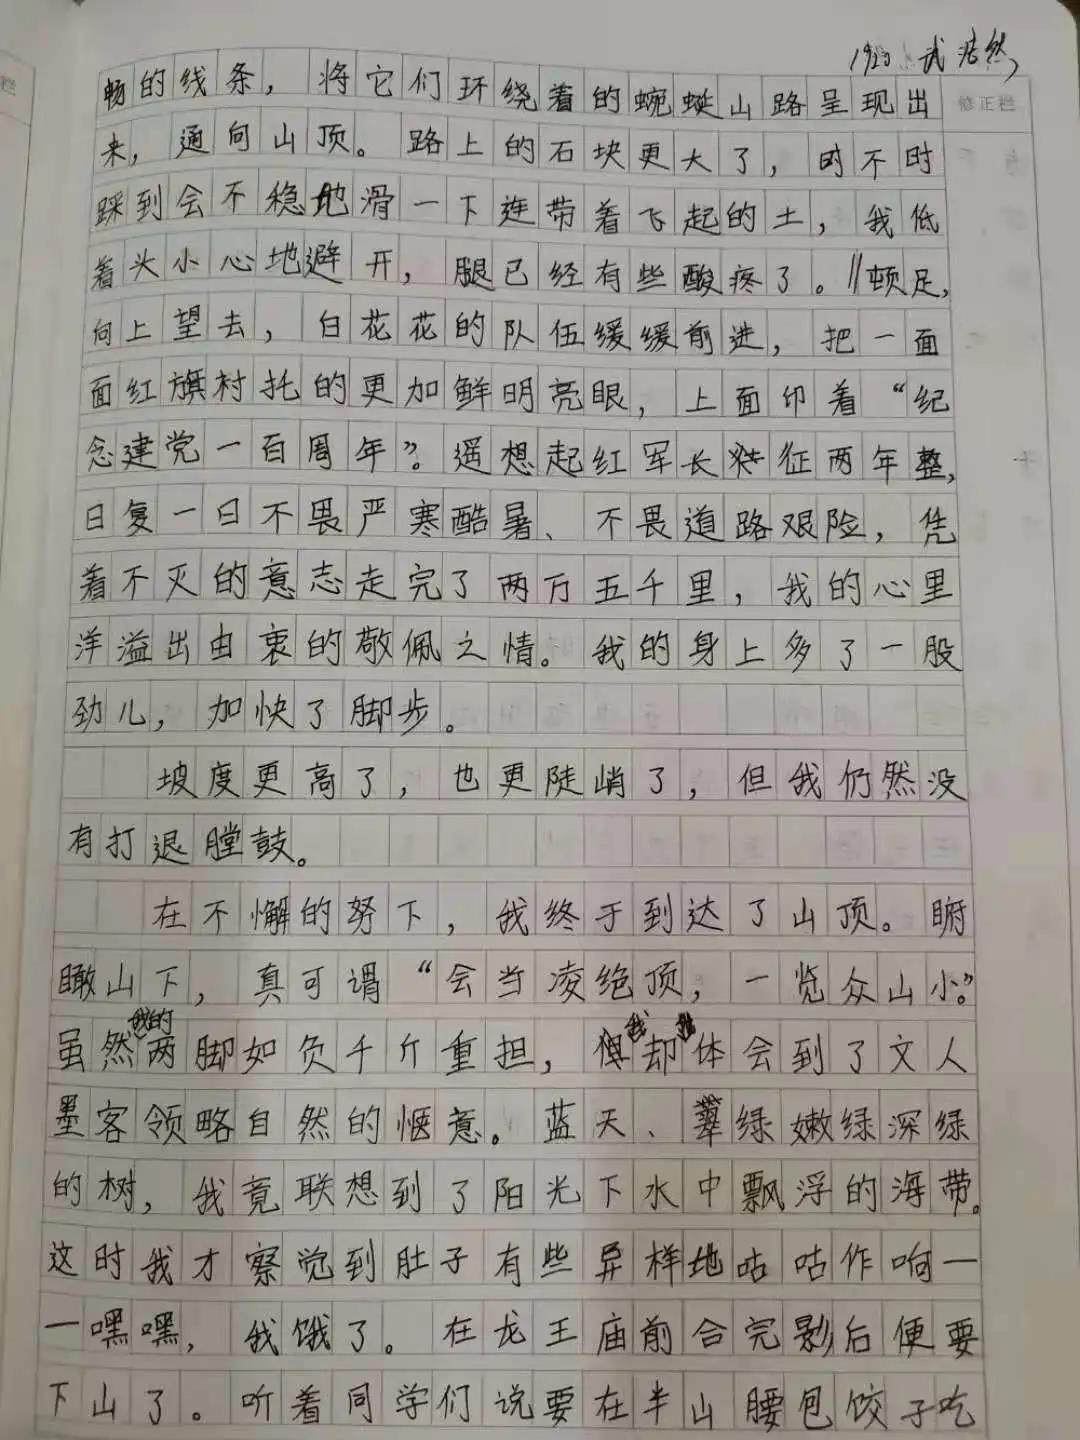 武浩然
修正栏
畅的线条，将它们环绕着的蜿蜒山路呈现出
来，通向山顶。路上的石块更大了，时不时
踩到会不稳地滑一下连带着飞起的土，我低
着头小心地避开，腿已经有些酸疼了。//顿足，
向上望去，白花花的队伍缓缓前进，把一面
面红旗村托的更加鲜明亮眼，上面印着“纪
念建党一百周年”。遥想起红军长征两年整，
日复一日不畏严寒酷暑、不畏道路艰险，凭
着不灭的意志走完了两万五千里，我的心里
洋溢出由衷的敬佩之情。我的身上多了一股
劲儿，加快了脚步。
坡度更高了，也更陡峭了，但我仍然没
有打退膛鼓。
在不懈的努下，我终于到达了山顶。瞰
瞰山下，真可谓“会当凌绝顶，一览众山小”。
虽然我的两脚如负千斤重担，但我却体会到了文人
墨客领略自然的惬意。蓝天、翠绿嫩绿深绿
的树，我竟联想到了阳光下水中飘浮的海带。
这时我才察觉到肚子有些异样地咕咕作响一
一嘿嘿，我饿了。在龙王庙前合完影后便要
下山了。听着同学们说要在半山腰包饺子吃